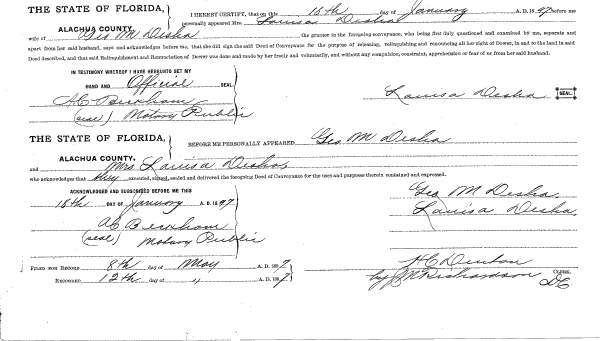 THE STATE OF FLORIDA, } I HEREBY CERTIFY, that on this 16th day of January A. D. 1897 before me
ALACHUA COUNTY. personally appeared Mrs. Louisa Desha
wife of Geo M Desha the grantor in the foregoing conveyance, who being first duly questioned and examined by me, separate and
apart from her said husband, says and acknowledges before me, that she did sign the said Deed of Conveyance for the purpose of releasing, relinquishing and renouncing all her right of Dower, in and to the land in said
Deed described, and that said Relinquishment and Renunciation of Dower was done and made by her freely and voluntarily, and without any compulsion, constraint, apprehension or fear of or from her said husband.
IN TESTIMONY WHEREOF I HAVE HEREUNTO SET MY
HAND AND Official SEAL.
Louisa Desha SEAL.
(seal) Notary Public
THE STATE OF FLORIDA, } BEFORE ME PERSONALLY APPEARED Geo M Desha
ALACHUA COUNTY.
and Mrs Louisa Desha,
who acknowledges that they executed, signed, sealed and delivered the foregoing Deed of Conveyance for the uses and purposes therein contained and expressed.
ACKNOWLEDGED AND SUBSCRIBED BEFORE ME THIS
16th DAY OF January A. D. 1897
Geo M Desha.
Louisa Desha.
(seal) Notary Public
FILED FOR RECORD 8th day of May A. D. 1897
H C Denton CLERK.
RECORDED 12th day of " A. D. 1897
by J M Richardson DC